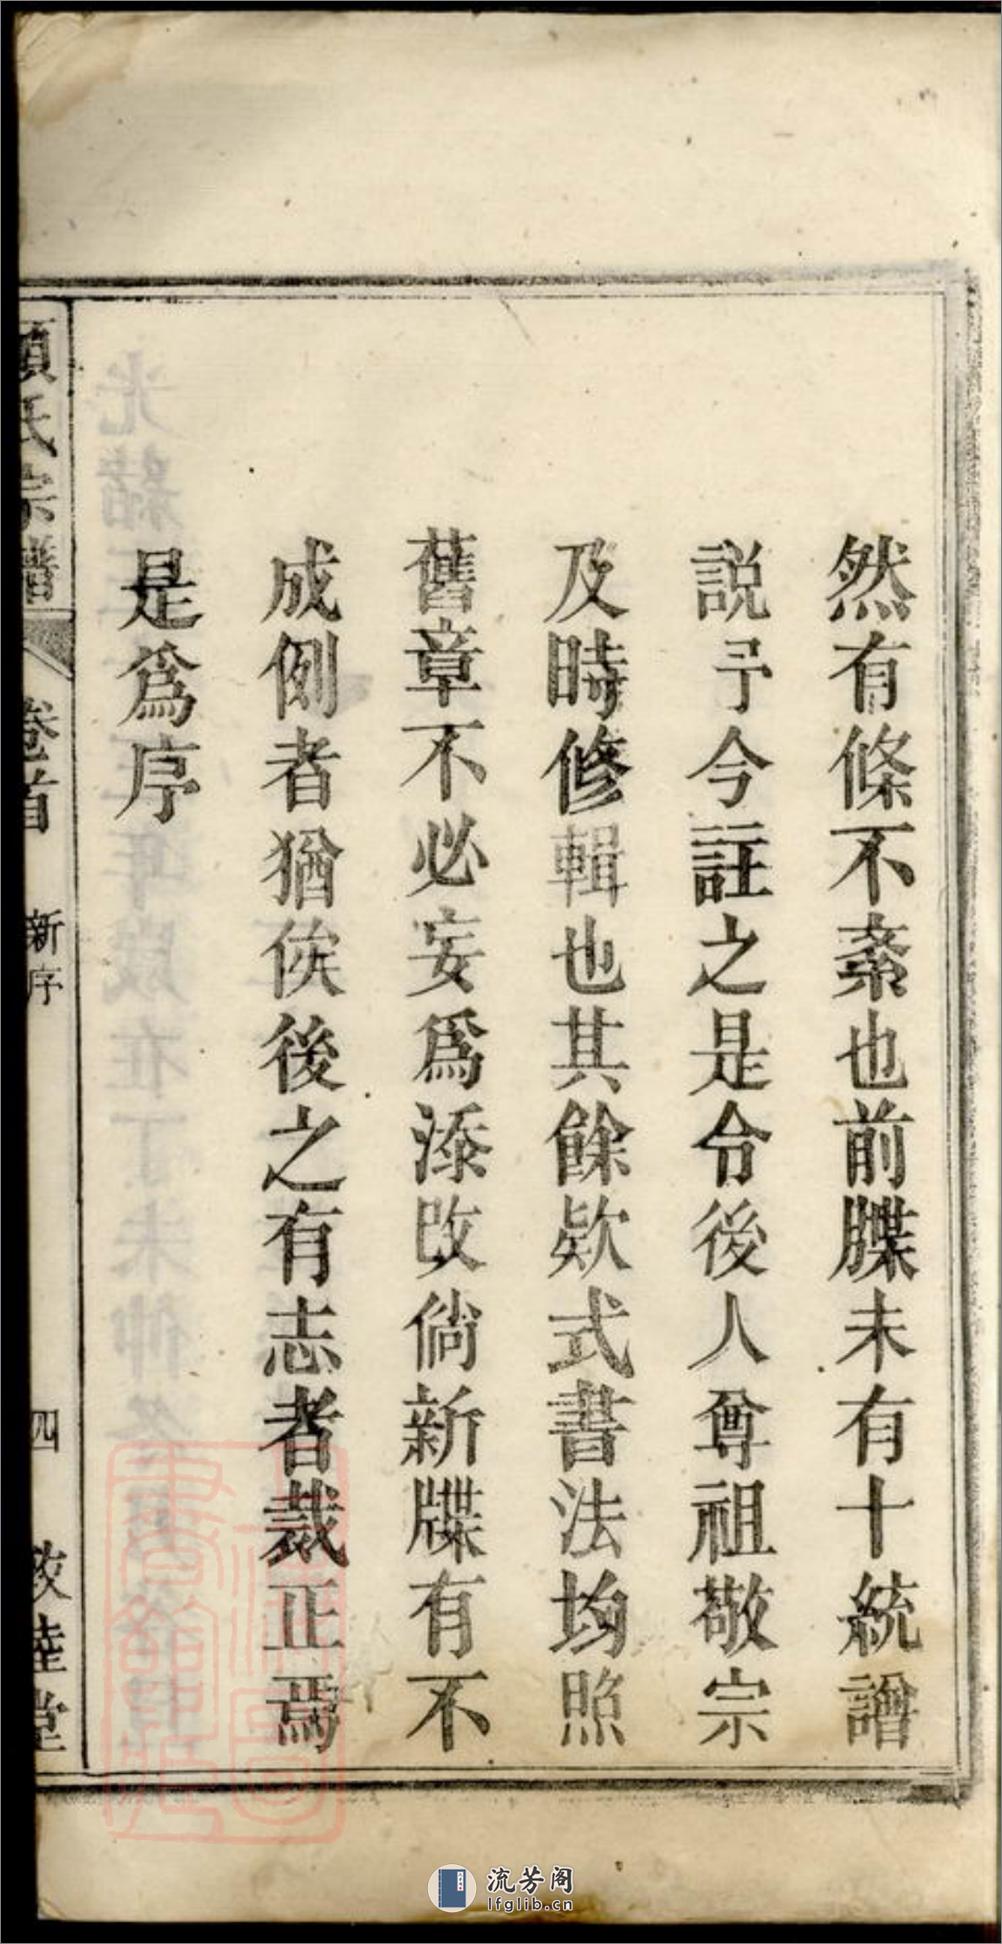 然有條不紊也前牒未有十統譜
説予今註之是令後人尊祖敬宗
及時修輯也其餘欵式書法均照
舊章不必妄爲添改倘新牒有不
成例者猶俟後之有志者裁正焉
是爲序
氏宗譜
卷首
新序
四
敦睦堂
流芳阁
lfglib.cn